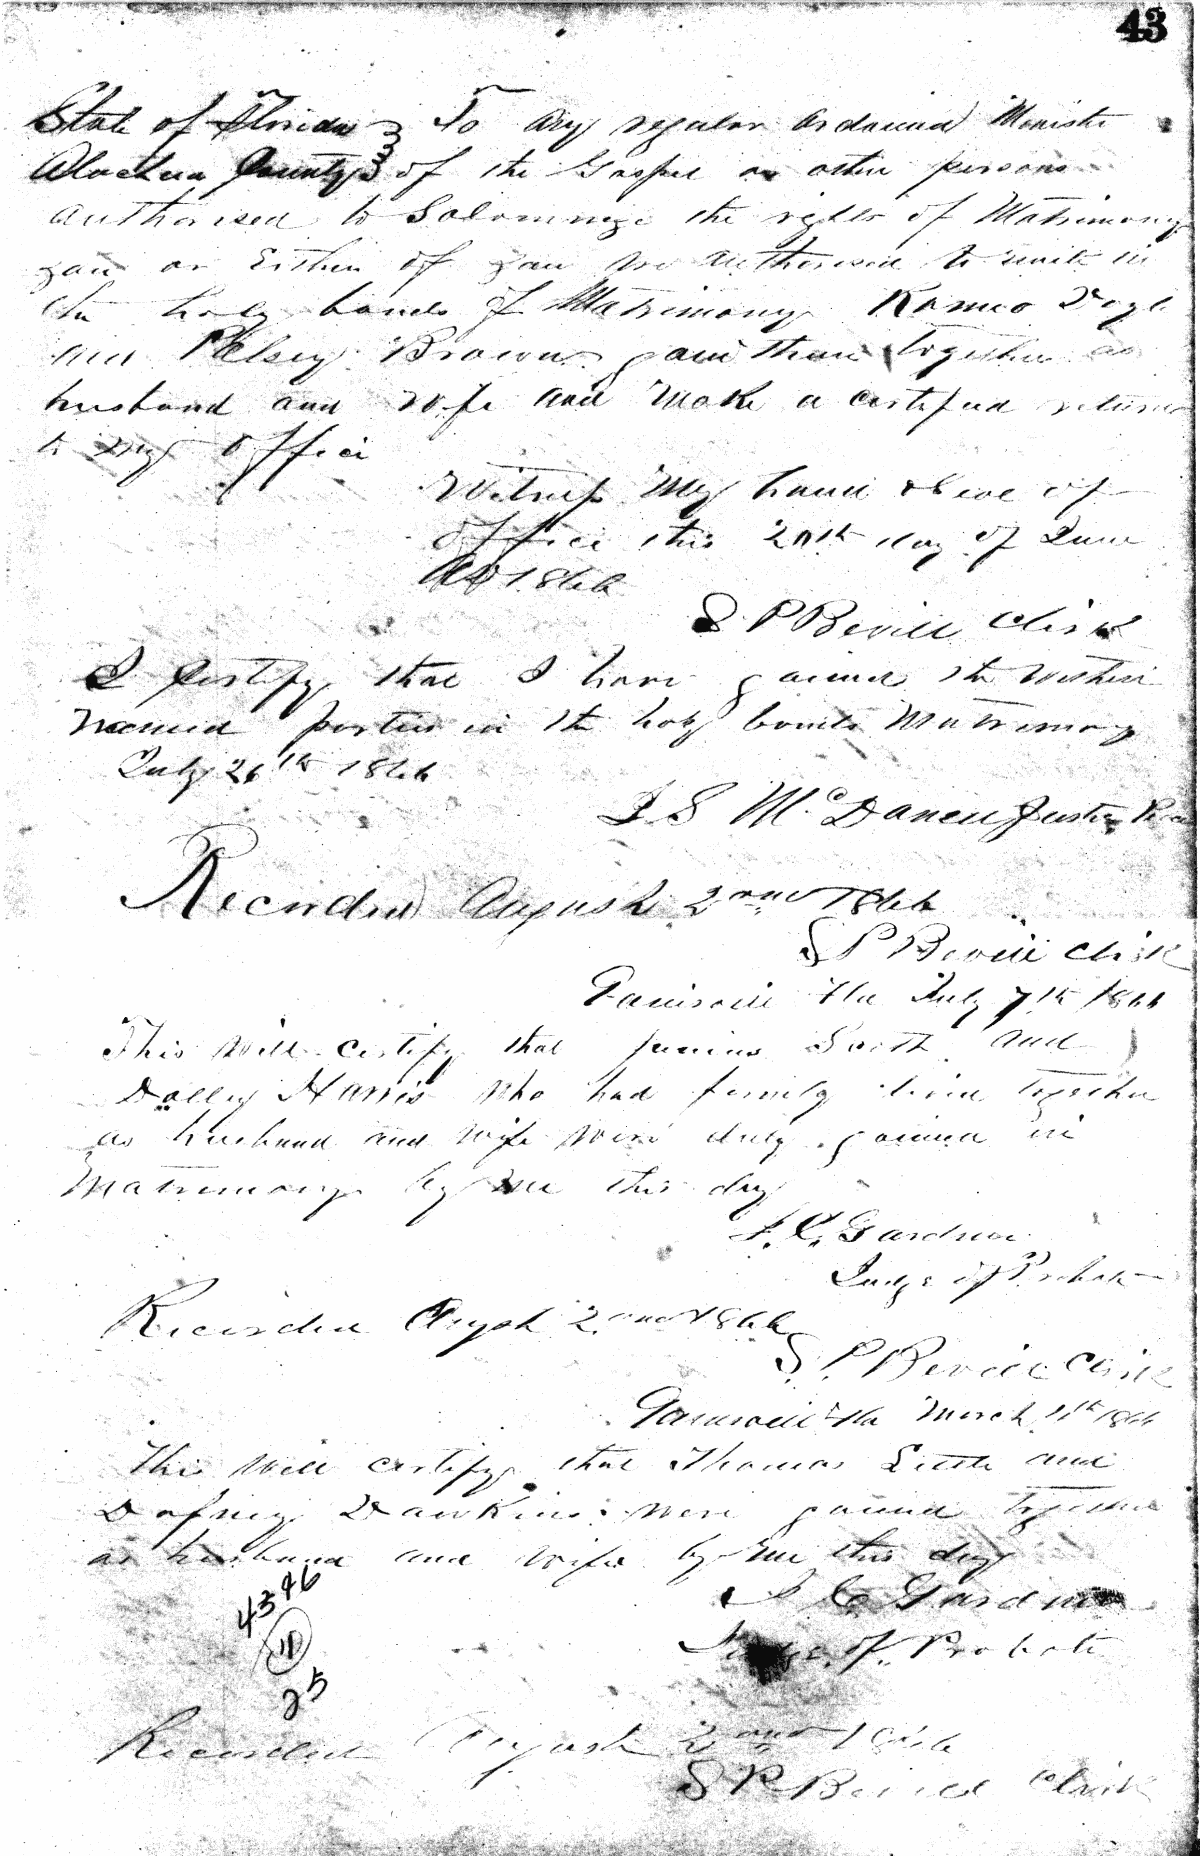 43
State of Florida } To any regular ordained Ministe
Alachua County } of the Gospel or other persons
authorised to Solomnize the rights of Matrimony
you or Either of you are authorised to unite in
the holy bonds of Matrimony Romeo
and Brown join them together as
husband and wife and make a certified return
to my office
Witness My hand & Seal of
office this 20th day of June
AD 1866
S P Bevill Clerk
I Certify that I have joined the within
named parties in the holy bonds Matrimony
July 26th 1866
J S McDanell Justice Peace
Recorded August 2nd 1866
S P Bevill Clerk
Gainsvill Fla July 7th 1866
This will certify that and
Dolley Harris who had formily lived together
as husband and wife were duly joined in
Matrimony by me this day
J. C. Gardner
Judge of Probate
Recorded Augst 2nd 1866
S. P. Bevill Clerk
Gainsvill Fla March 11th 1866
This will certify that Thomas Little and
Dafney Dawkins were joined together
as husband and wife by me this day
J C Gardner
Judge of Probate
4346
25
Recorded August 2nd 1866
S P Bevill Clerk